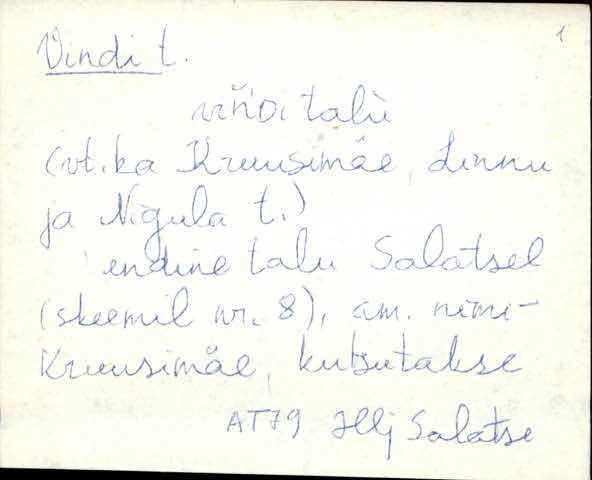 Vindi t.
1
talù
(vt. ka Kruusimäe, Linnu
ja Nigula t.)
endine talu Salatsel
(skeemil nr. 8), am. nimi-
Kruusimäe, kutsutakse
AT79 Hlj Salatse